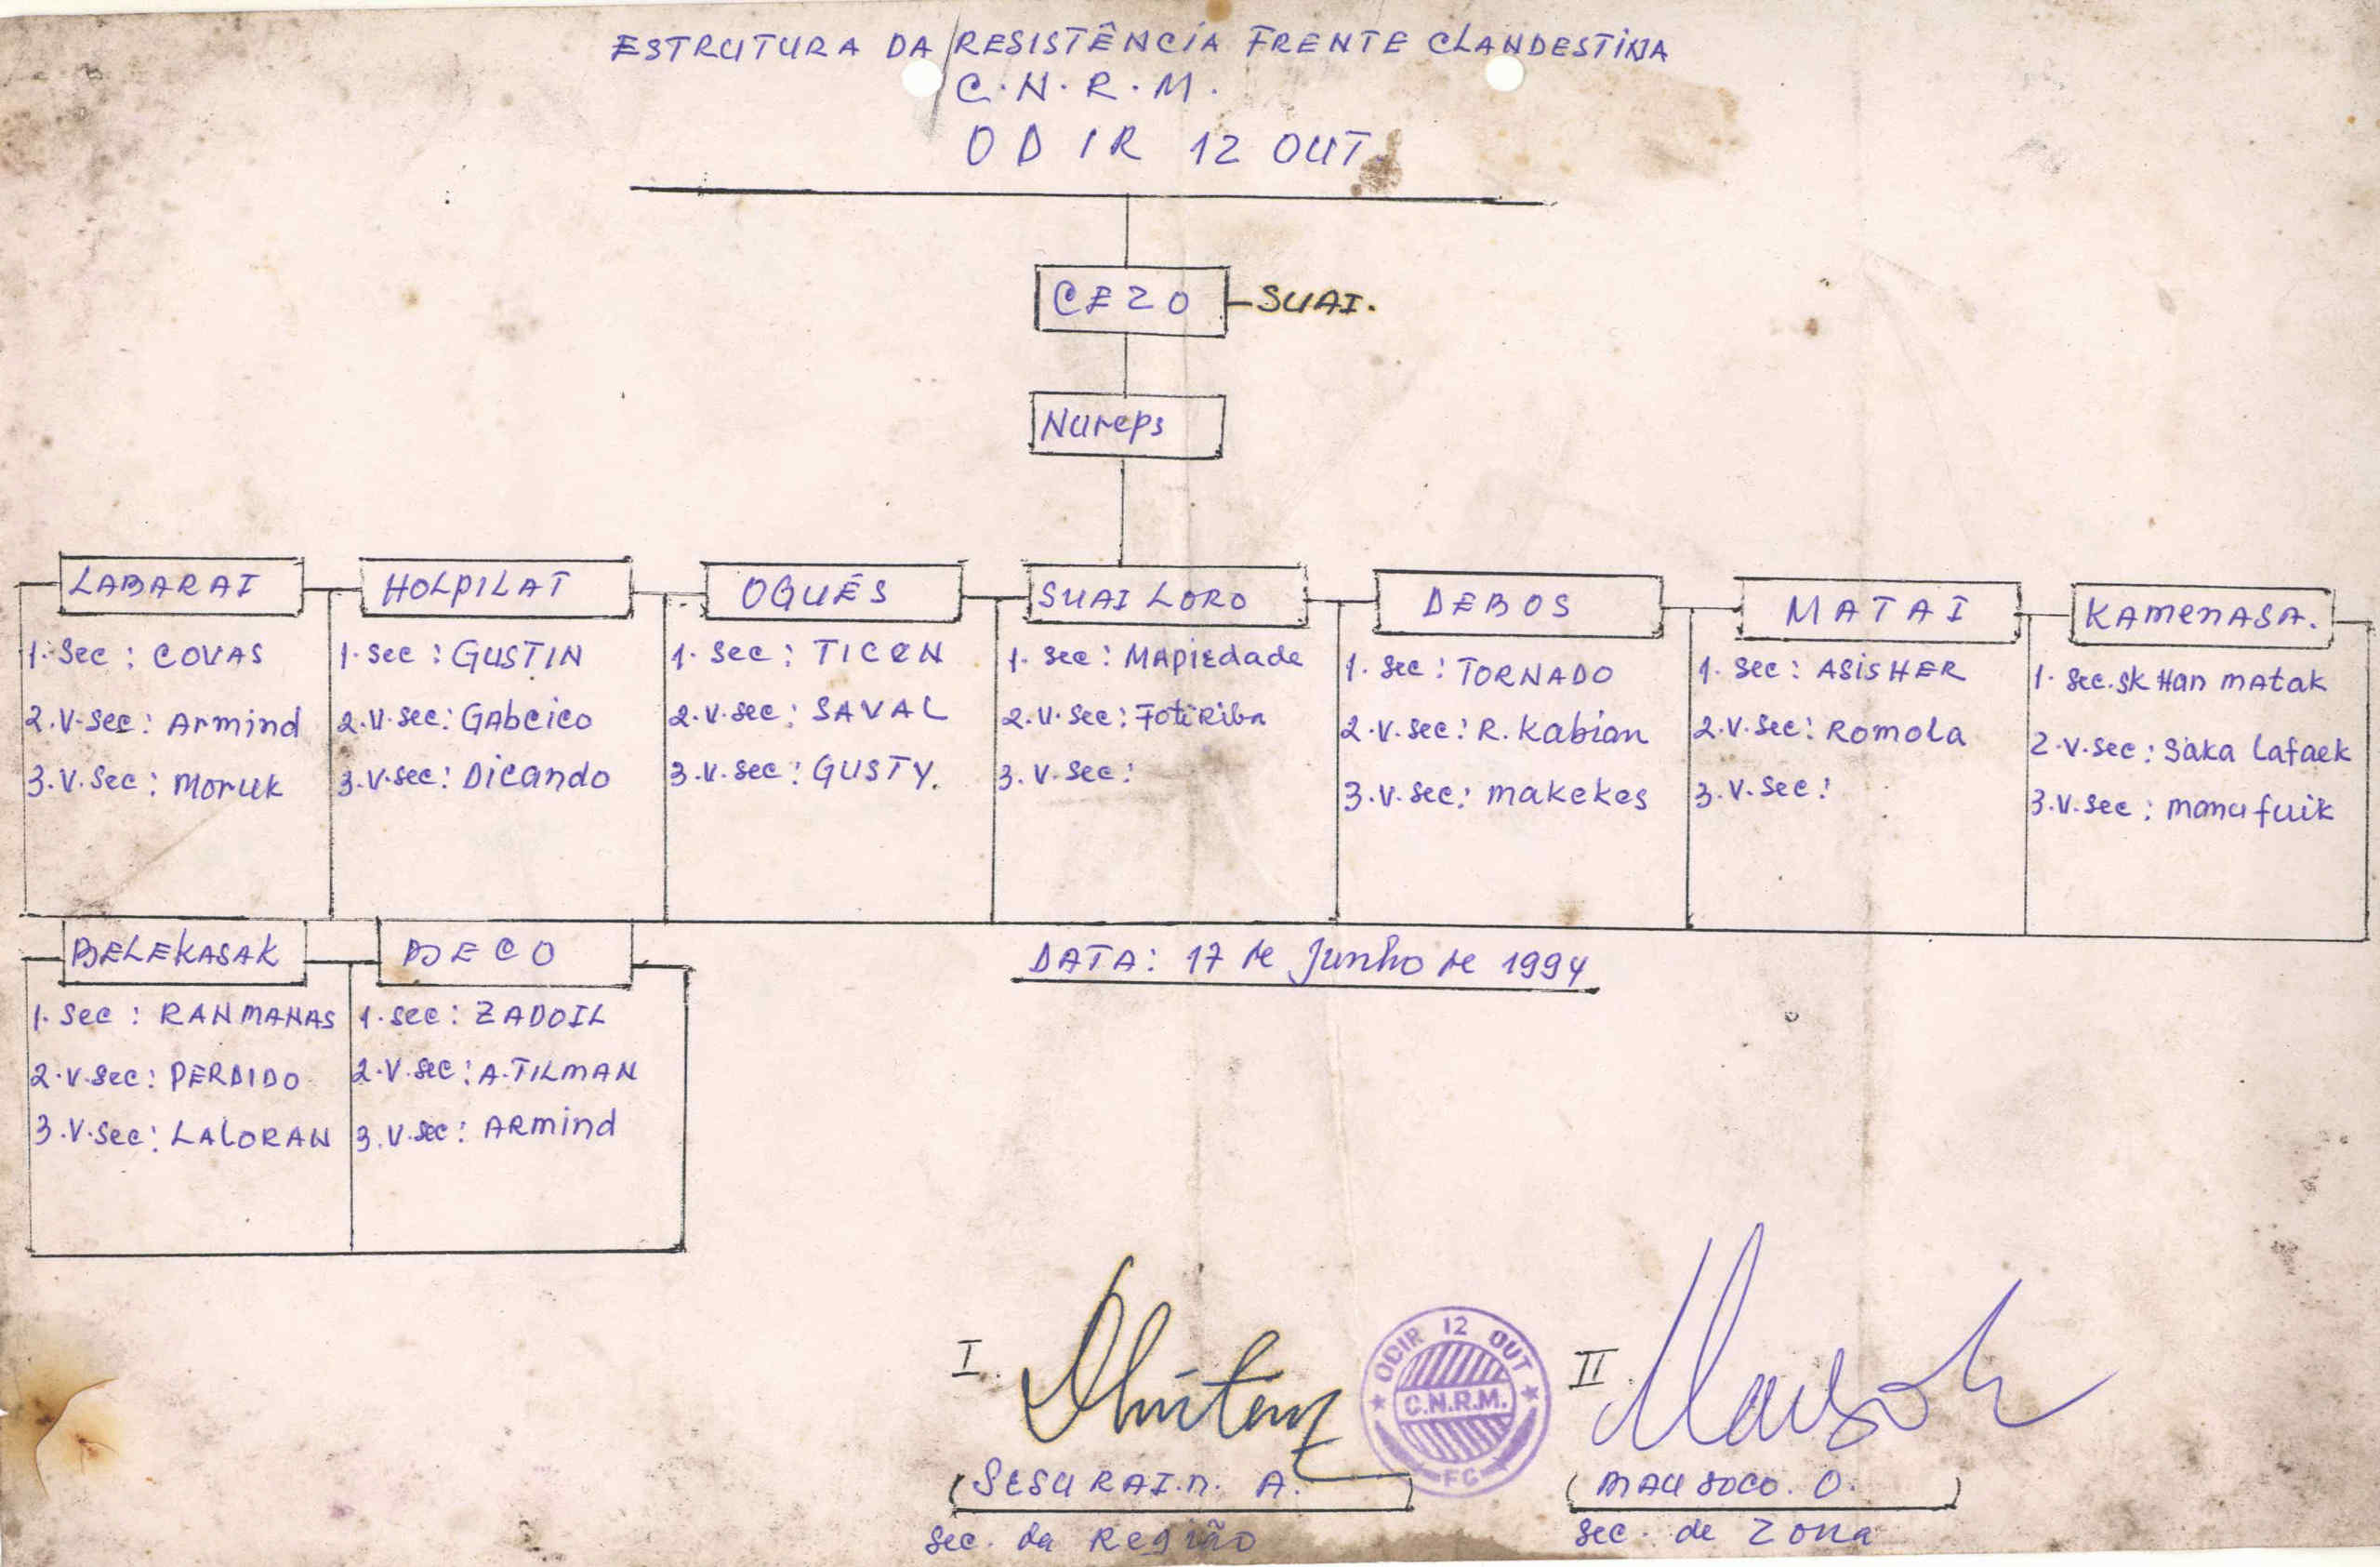 ESTRUTURA DA RESISTÊNCIA FRENTE CLANDESTINA
C.N.R.M.
ODIR 12 OUT.
CEZO
SUAI.
Nureps
LABARAI
1. Sec : COVAS
2. V-Sec : Armind
3. V. Sec : Moruk
HOLPILAT
1. Sec : GUSTIN
2. V. Sec : GAbcico
3. V. Sec : Dicando
OGUÉS
1. Sec : TICEN
2. V. Sec : SAVAL
3. V. Sec : GUSTY.
SUAI LORO
1. Sec : MAPiEdade
2. V. Sec : FotiRibn
3. V. Sec :
DEBOS
1. Sec : TORNADO
2. V. Sec : R. Kabian
3. V. Sec : makekes
MATAI
1. Sec : ASiSHER
2. V. Sec : ROMOLA
3. V. Sec :
KAMENASA.
1. Sec. SK Han MAtak
2. V. Sec : Saka Lafaek
3. V. Sec : Manu fuik
BELEKASAK
1. Sec : RANMANAS
2. V. Sec : PERDIDO
3. V. Sec : LALORAN
BECO
1. Sec : ZADOIL
2. V. Sec : A. TILMAN
3. V. Sec : ARmind
DATA : 17 de Junho de 1994
I.
(SESU RAI.n. A.)
Sec. da Região
ODIR 12 OUT
C.N.R.M.
FC
II.
(MAU SOCO. O.)
Sec. de Zona